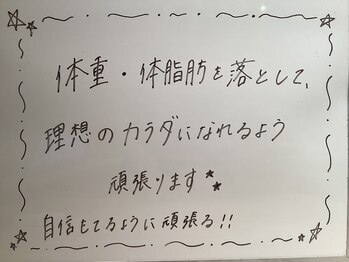 体重・体脂肪を落として、
理想のカラダになれるよう
頑張ります★★
自信もてるように頑張る!!